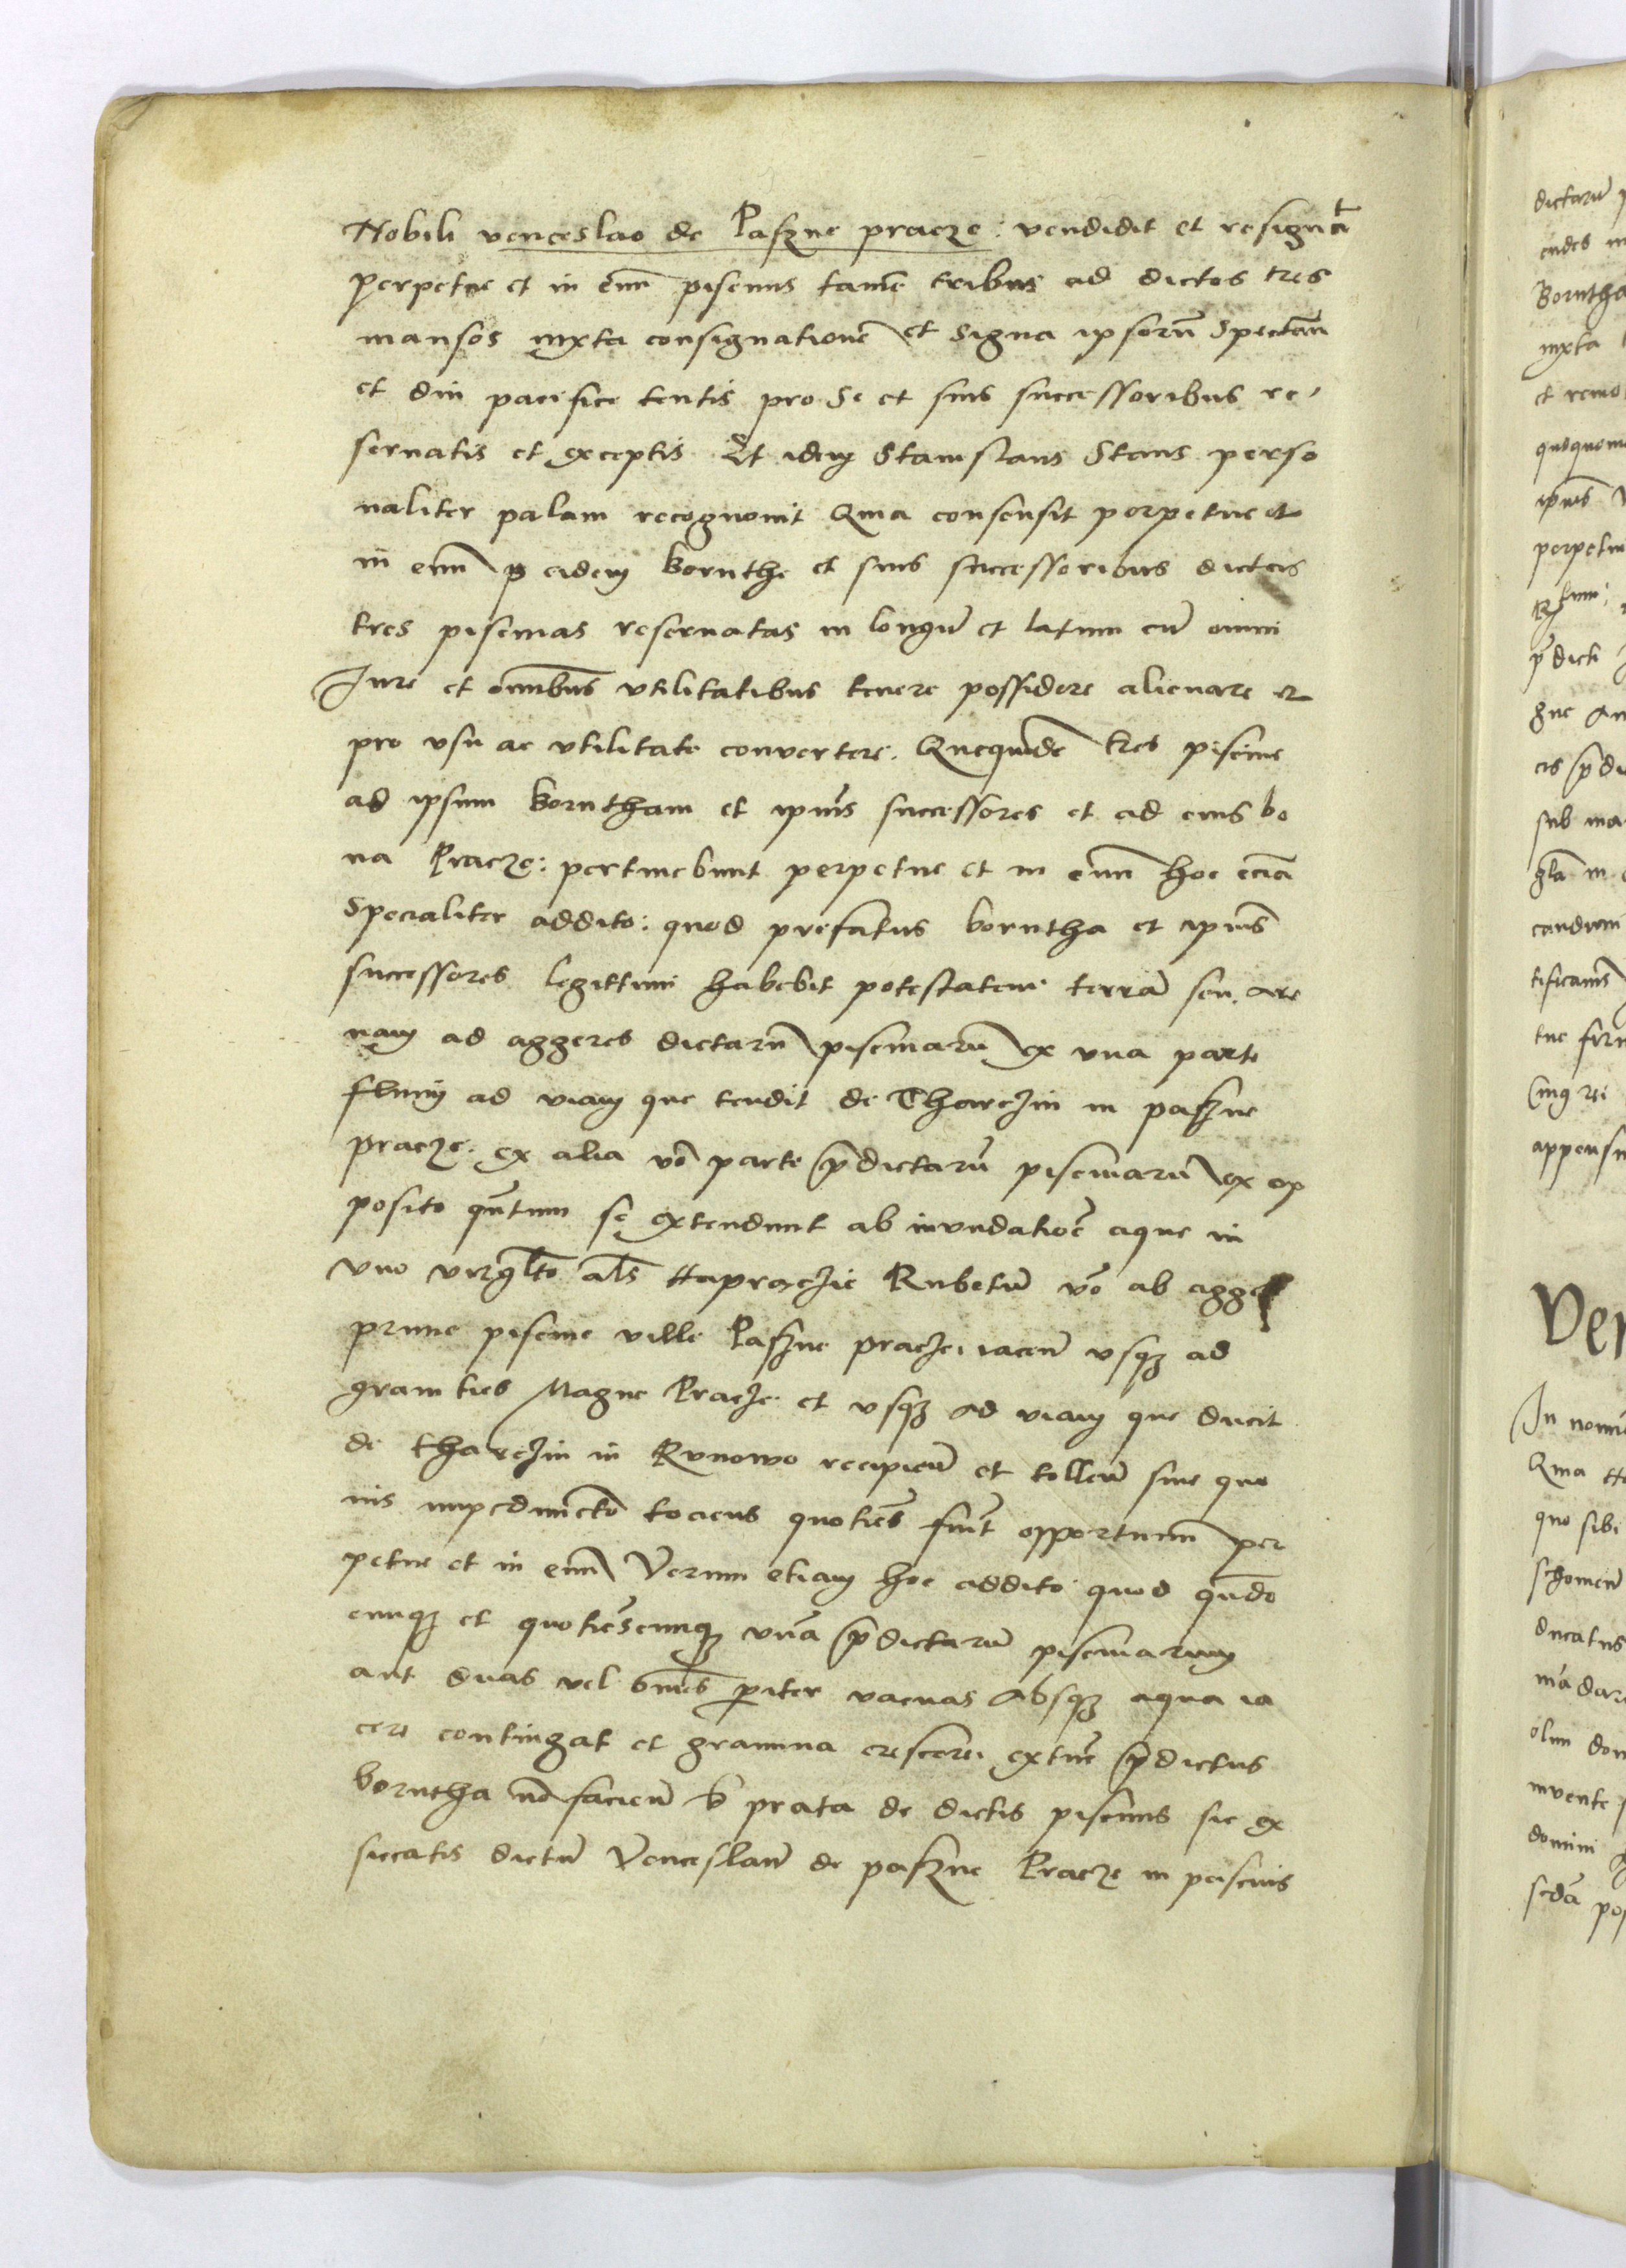 Nobili venceslao de Paszne praeze : vendidit et resignat
perpetue et in eum piscinis tamen tribus ad dictos tres
mansos iuxta consignationē et signa ipsorū spectan
et diu pacifice tentis pro se et suis successoribus re,
servatis et exceptis Et idem Stanislaus Stans perso
naliter palam recognovit Quia consensit perpetue et
in eum p eidem Boruthe et suis successoribus dictas
tres piscinas reservatas in longū et latum cū omni
Jure et omnibus utilitatibus tenere possidere alienare et
pro usu ac utilitate convertere. Quequidē tres piscine
ad ipsum Borutham et ipius successores et ad eius bo
na Pracze: pertinebunt perpetue et in eum hoc eciā
specialiter addito: quod prefatus borutha et ipius
successores legittimi habebit potestatem terrā seu are
nam ad aggeres dictarū piscinarū ex una parte
ad viam que tendit de Tharczin in paszne
pracze. ex alia vo parte pdictarū piscinarū ex op
posito qntum se extendunt ab inundatioē aque in
uno virgulto als Rubetū vo ab agge
prime piscine ville Paszne pracze, iacen usqz ad
granities Magne Pracze et usqz ad viam que ducit
de tharczin in Runowo recipien et tollen sine quo
vis impedimēto tociens quotiēs fuit opportunū per
petue et in eum Verum etiam hoc addito quod qndo
cumqz et quotiēscumqz unā pdictarū piscinarum
aut duas vel omes pariter vacuas absqz aqua ia
cere contingat et gramina crescere, extūc pdictus
borutha nō facien prata de dictis piscinis sic ex
siccatis dictū Venceslaū de paszne Pracze in pascuis
dictarū
Borntha
perpetu
pdicti
sub ma
candum
tificams
appensu
Ver
In nomi
Quia
quo sibi
ducatus
olim dom
invente
domini